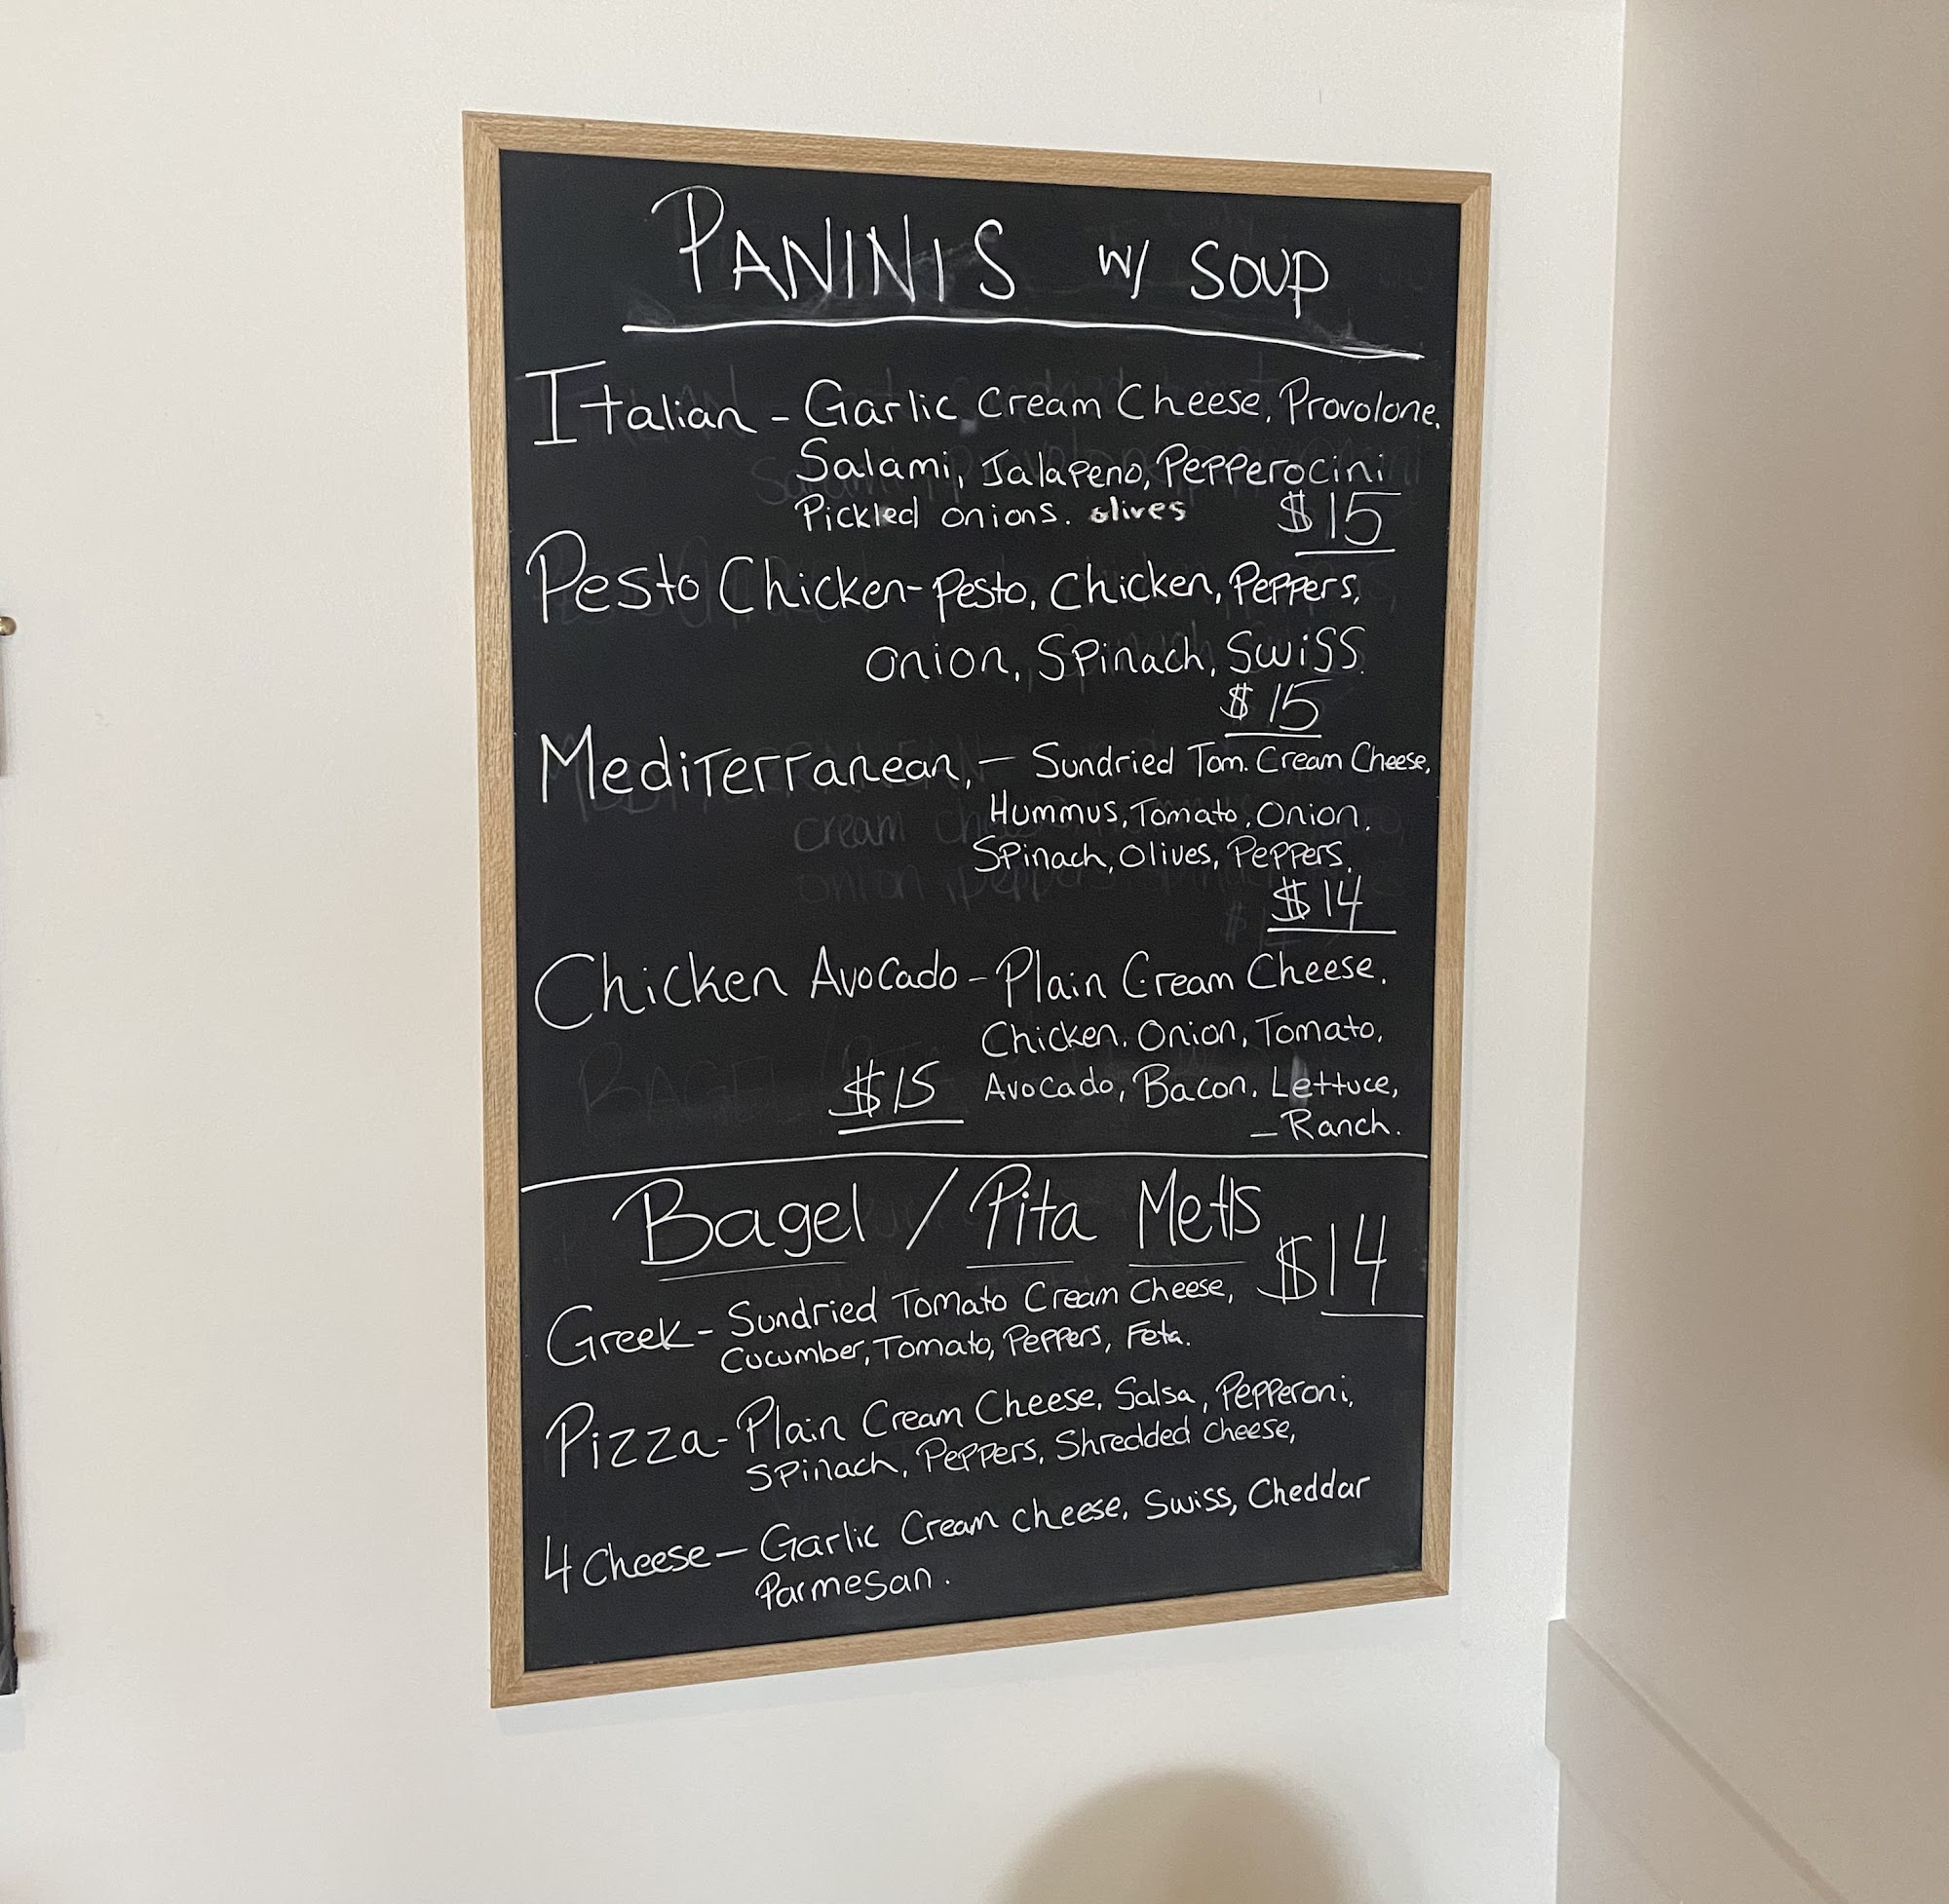 PANINIS w/ SOUP
Italian - Garlic Cream Cheese, Provolone,
Salami, Jalapeno, Pepperocini
Pickled onions. olives $15
Pesto Chicken - Pesto, Chicken, Peppers,
onion, Spinach, Swiss.
$15
Mediterranean, - Sundried Tom. Cream Cheese,
Hummus, Tomato, Onion,
Spinach, Olives, Peppers.
$14
Chicken Avocado - Plain Cream Cheese,
Chicken, Onion, Tomato,
$15 Avocado, Bacon, Lettuce,
- Ranch.
Bagel / Pita Metls
$14
Greek - Sundried Tomato Cream Cheese,
Cucumber, Tomato, Peppers, Feta.
Pizza - Plain Cream Cheese, Salsa, Pepperoni,
Spinach, Peppers, Shredded cheese,
4 Cheese - Garlic Cream cheese, Swiss, Cheddar
Parmesan.